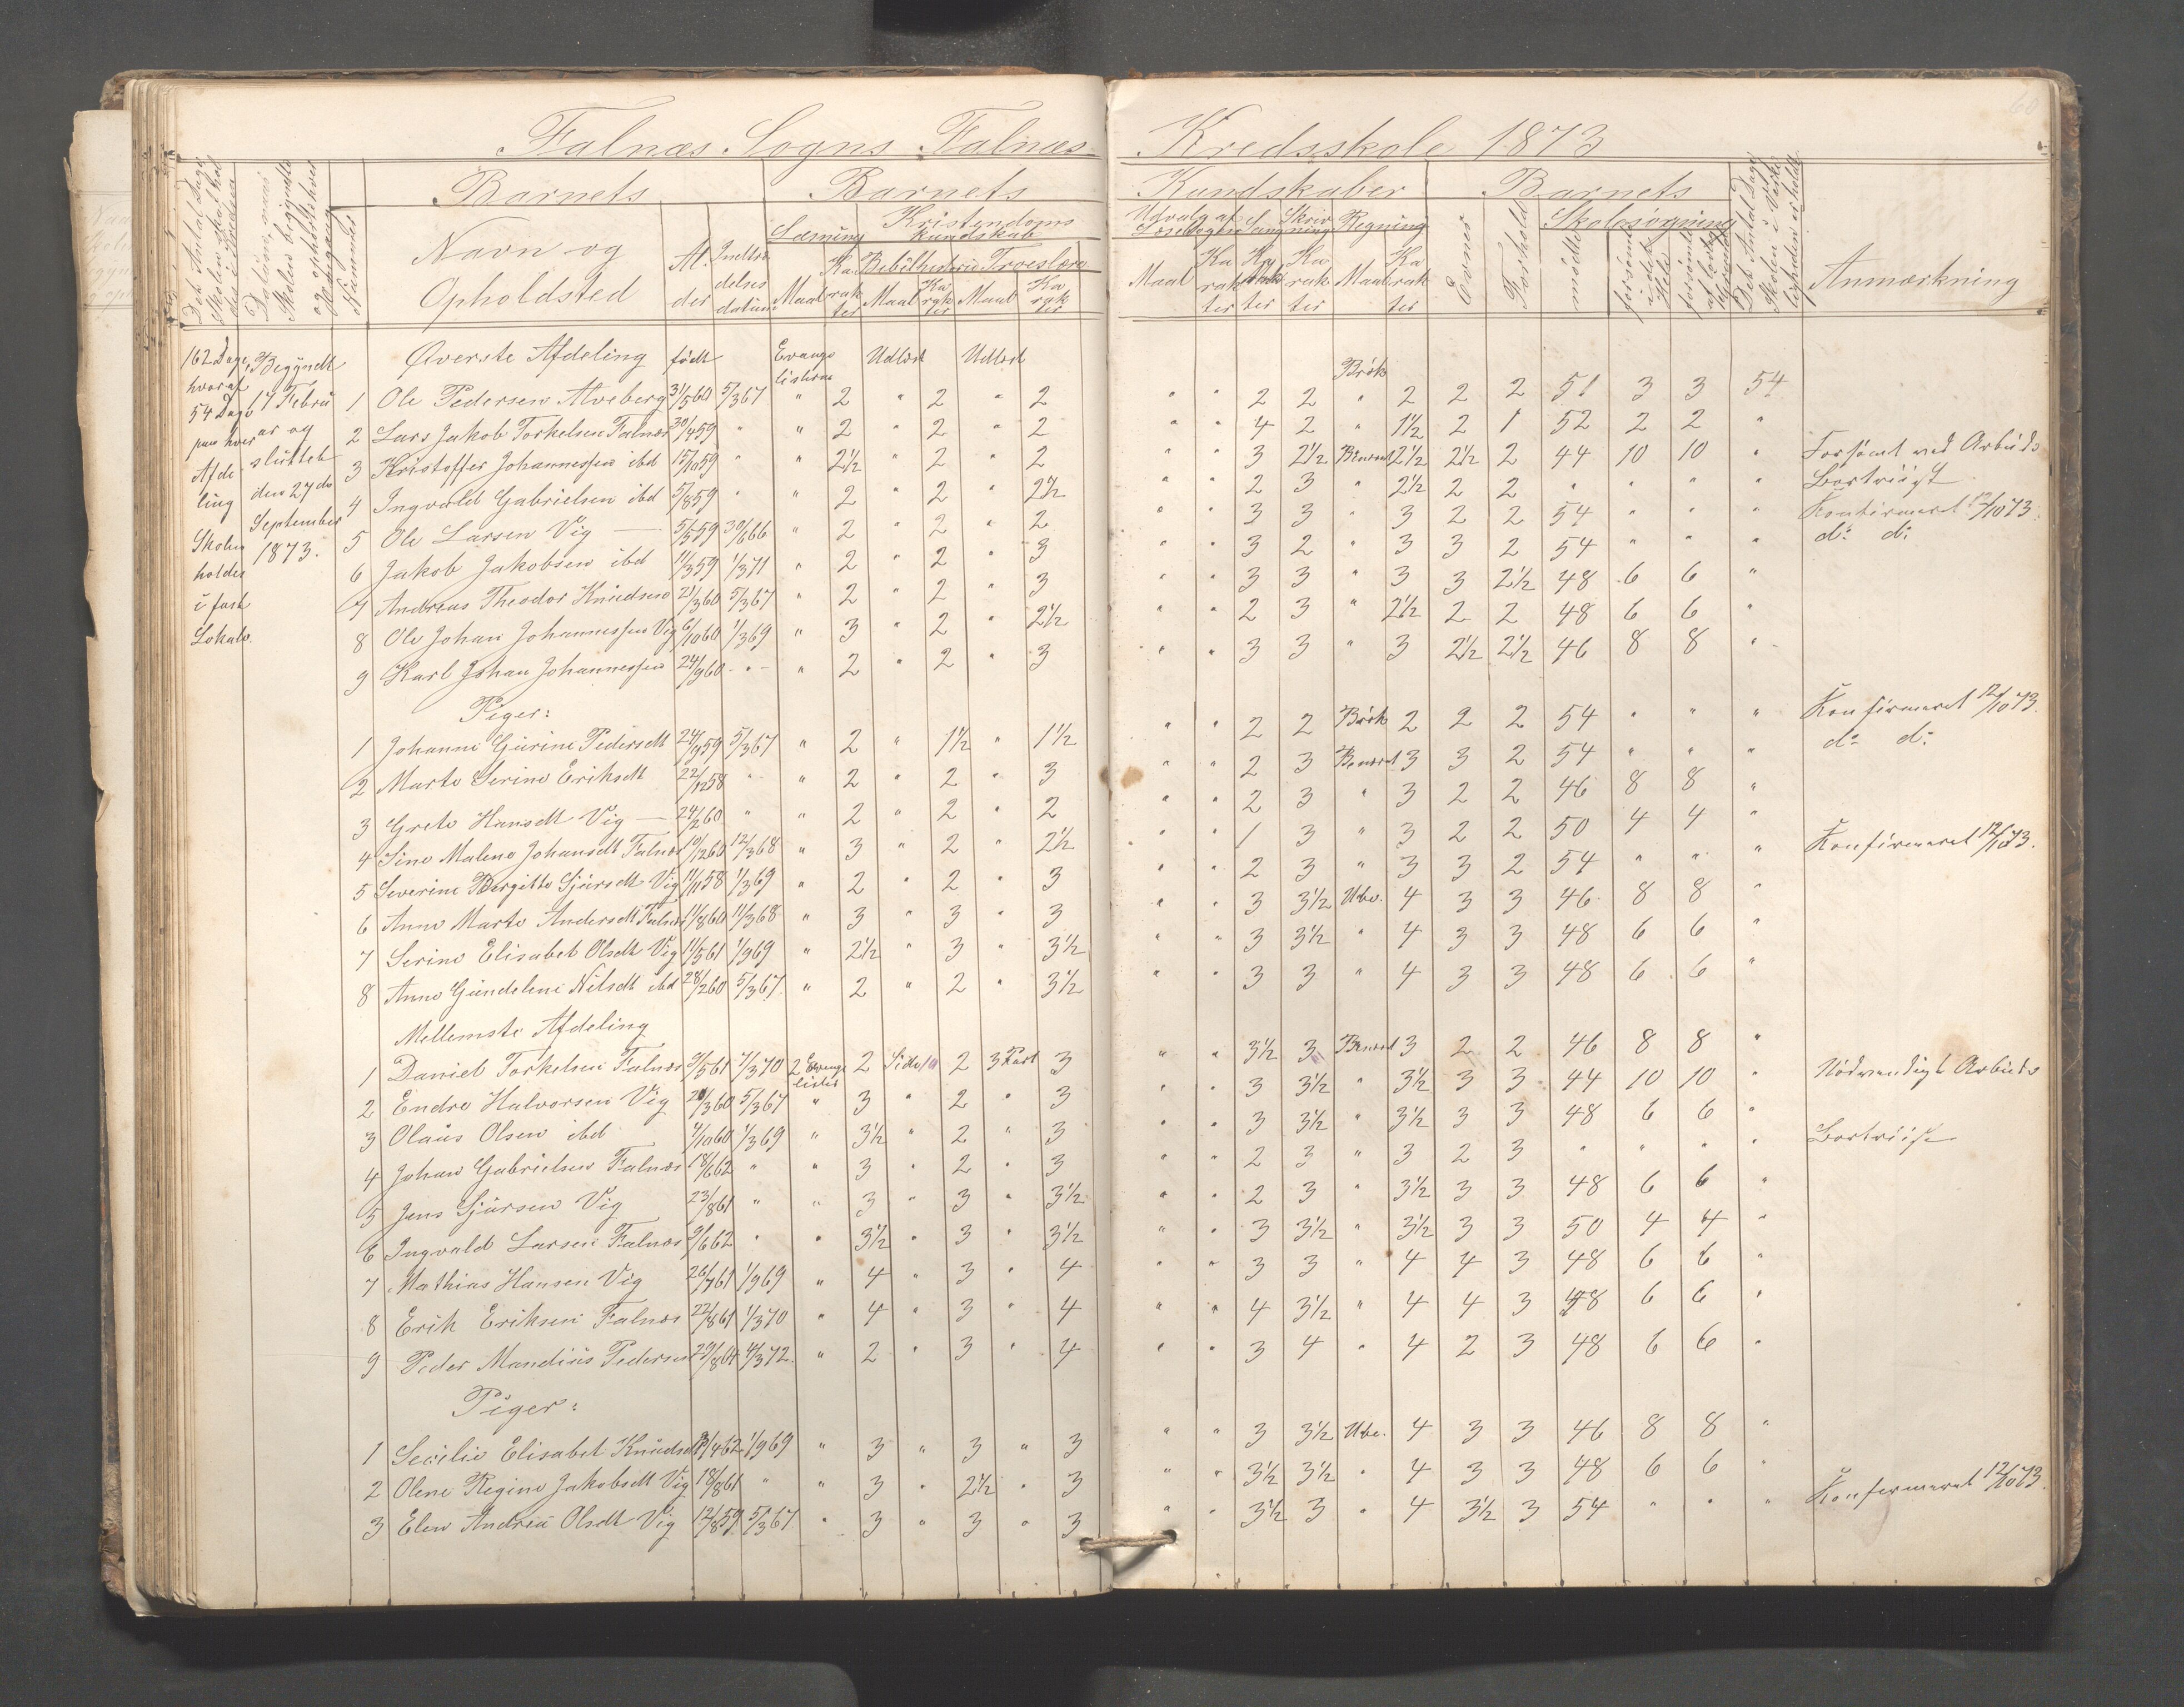 Falnæs Sogns Falnæs Kredsskole 1873
Barnets Barnets Kundskaber Barnets
Navn og Opholdsted
Alder
Indtrædelses datum
Læsning
Kristendoms Kundskab
Bibelhistorie Troeslære
Maal Karakter Maal Karakter Maal Karakter
Udvalg af Læsebogen Sang Skrivning Regning
Maal Karakter Karakter Karakter Maal Karakter
Evner Forhold
Skolesøgning
mødt forsømt i det Hele forsømt af lovlig Grund
Det Antal Dage Skolen i Virkeligheden er holdt
Anmærkning
162 Dage, hvoraf 54 Dage paa hver Afdeling Skolen holdes i fast Lokale.
Begyndt 17 Februar og sluttet den 27de September 1873.
Øverste Afdeling født Evangelisterne Udlæst Udlæst Brøk
1 Ole Pedersen Alveberg 31/5 60 5/3 67 " 2 " 2 " 2 " " 2 2 " 2 2 2 51 3 3 54
2 Lars Jakob Torkelsen Falnæs 30/4 59 " " 2 " 2 " 2 " " 4 2 " 1½ 2 1 52 2 2 "
3 Kristoffer Johannessen ibd 15/10 59 " " 2½ " 2 " 2 " " 3 2½ Benævnt 2½ 2½ 2 44 10 10 " Forsømt ved Arbeide
4 Ingvald Gabrielsen ibd 5/8 59 " " 2 " 2 " 2½ " " 2 3 " 2½ 2 2 " " " " Bortreist
5 Ole Larsen Vig 5/5 59 30/6 66 " 2 " 2 " 2 " " 3 3 " 3 2 2 54 " " " Konfirmeret 12/10 73.
6 Jakob Jakobsen ibd 11/3 59 1/3 71 " 2 " 2 " 3 " " 3 2 " 3 3 2 54 " " " do do
7 Andreas Theodor Knudsen 21/3 60 5/3 67 " 2 " 2 " 3 " " 3 3 " 3 3 2½ 48 6 6 "
8 Ole Johan Johannessen Vig 6/10 60 1/3 69 " 3 " 2 " 2½ " " 2 3 " 2½ 2 2 48 6 6 "
9 Karl Johan Johannessen 24/9 60 " " 2 " 2 " 3 " " 3 3 " 3 2½ 2½ 46 8 8 "
Piger:
1 Johanne Gurine Pedersdt 24/4 59 5/3 67 " 2 " 1½ " 1½ " " 2 2 Brøk 2 2 2 54 " " " Konfirmeret 12/10 73.
2 Marte Serine Eriksdt 22/12 58 " " 2 " 2 " 3 " " 2 3 Benævnt 3 3 2 54 " " " do do
3 Grete Hansdt Vig 24/2 60 " " 2 " 2 " 2 " " 2 3 " 3 2 2 46 8 8 "
4 Sine Malene Johansdt Falnæs 10/12 60 12/3 68 " 3 " 2 " 2½ " " 1 3 " 3 2 2 50 4 4 "
5 Severine Bergitte Sjursdt Vig 11/11 58 1/3 69 " 2 " 2 " 3 " " 2 3 " 3 3 2 54 " " " Konfirmeret 12/10 73.
6 Anne Marte Andersdt Falnæs 11/8 60 11/3 68 " 3 " 3 " 3 " " 3 3½ Ube. 4 3 3 46 8 8 "
7 Serine Elisabet Olsdt Vig 11/5 61 1/9 69 " 2½ " 3 " 3½ " " 3 3½ " 4 3 3 48 6 6 "
8 Anne Gundeline Nilsdt ibd 28/2 60 5/3 67 " 2 " 2 " 3½ " " 3 3 " 4 3 3 48 6 6 "
Mellemste Afdeling
1 Daniel Torkelsen Falnæs 9/5 61 7/3 70 2 Evangelister 2 2 3 Part 3 " " 3½ 3 Benævnt 3 2 2 46 8 8 "
2 Endre Halvorsen Vig 20/3 60 5/3 67 " 3 " 2 " 3 " " 3 3½ " 3½ 3 3 44 10 10 " Nødvendigt Arbeide
3 Olaus Olsen ibd 4/10 60 1/3 69 " 3½ " 2 " 3 " " 3 3½ " 3½ 3 3 48 6 6 "
4 Johan Gabrielsen Falnæs 18/6 62 " " 3 " 2 " 3 " " 2 3 " 3 2 3 " " " " Bortreist
5 Jens Sjursen Vig 23/8 61 " " 3 " 3 " 3½ " " 2 3 " 3½ 3 3 48 6 6 "
6 Ingvald Larsen Falnæs 9/6 62 " " 3½ " 3 " 3½ " " 3 3½ " 3½ 3 3 50 4 4 "
7 Mathias Hansen Vig 26/7 61 1/9 69 " 4 " 3 " 4 " " 3 3 " 4 4 3 48 6 6 "
8 Erik Eriksen Falnæs 22/8 61 1/3 70 " 4 " 3 " 4 " " 4 3½ " 4 4 3 48 6 6 "
9 Peder Mandius Pedersen 29/8 64 4/3 72. " 2 " 3 " 4 " " 3 4 " 4 2 3 48 6 6 "
Piger:
1 Secilie Elisabet Knudsdt 1/9 69 " 3 " 3 " 3 " " 3 3½ Ube. 4 3 3 46 8 8 "
2 Olene Regine Jakobsdt Vig 18/8 61 " " 3 " 2½ " 3 " " 3½ 3½ " 4 3 3 48 6 6 "
3 Elen Andrea Olsdt Vig 12/8 59 5/3 67 " 3 " 3 " 3 " " 3½ 3 " 4 3½ 3 54 " " " Konfirmeret 12/10 73.